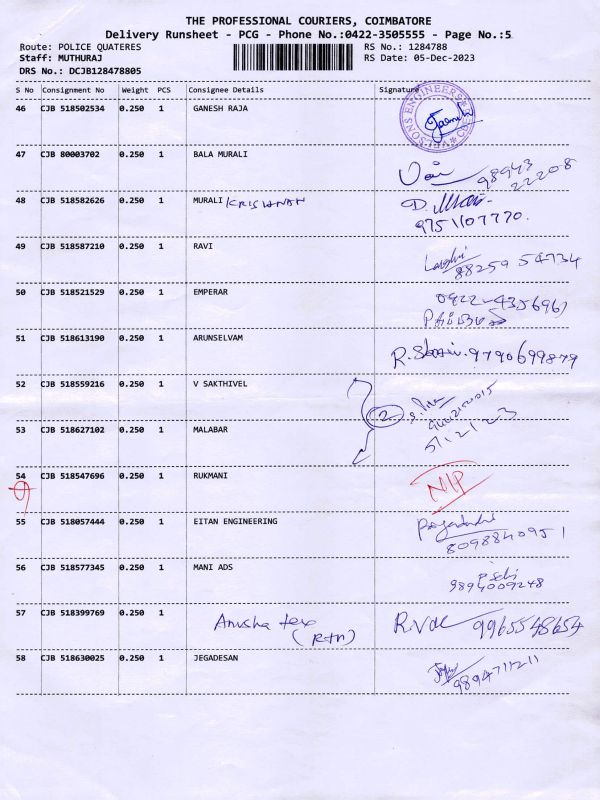 THE PROFESSIONAL COURIERS, COIMBATORE
Delivery Runsheet - PCG - Phone No.:0422-3505555 - Page No.:5
Route: POLICE QUATERES
RS No.: 1284788
Staff: MUTHURAJ
RS Date: 05-Dec-2023
DRS No.: DCJB128478805
S No Consignment No Weight PCS Consignee Details Signature
46 CJB 518502534 0.250 1 GANESH RAJA
47 CJB 80003702 0.250 1 BALA MURALI
98943
22208
48 CJB 518582626 0.250 1 MURALI KRISHNAN
9751107770.
49 CJB 518587210 0.250 1 RAVI
88259 54734
50 CJB 518521529 0.250 1 EMPERAR
0422-4356967
51 CJB 518613190 0.250 1 ARUNSELVAM
9790699879
52 CJB 518559216 0.250 1 V SAKTHIVEL
2
5/12/23
53 CJB 518627102 0.250 1 MALABAR
54 CJB 518547696 0.250 1 RUKMANI
55 CJB 518057444 0.250 1 EITAN ENGINEERING
8098840951
56 CJB 518577345 0.250 1 MANI ADS
9894009248
57 CJB 518399769 0.250 1 Anusha tex
(RTN)
9965548654
58 CJB 518630025 0.250 1 JEGADESAN
9894711211